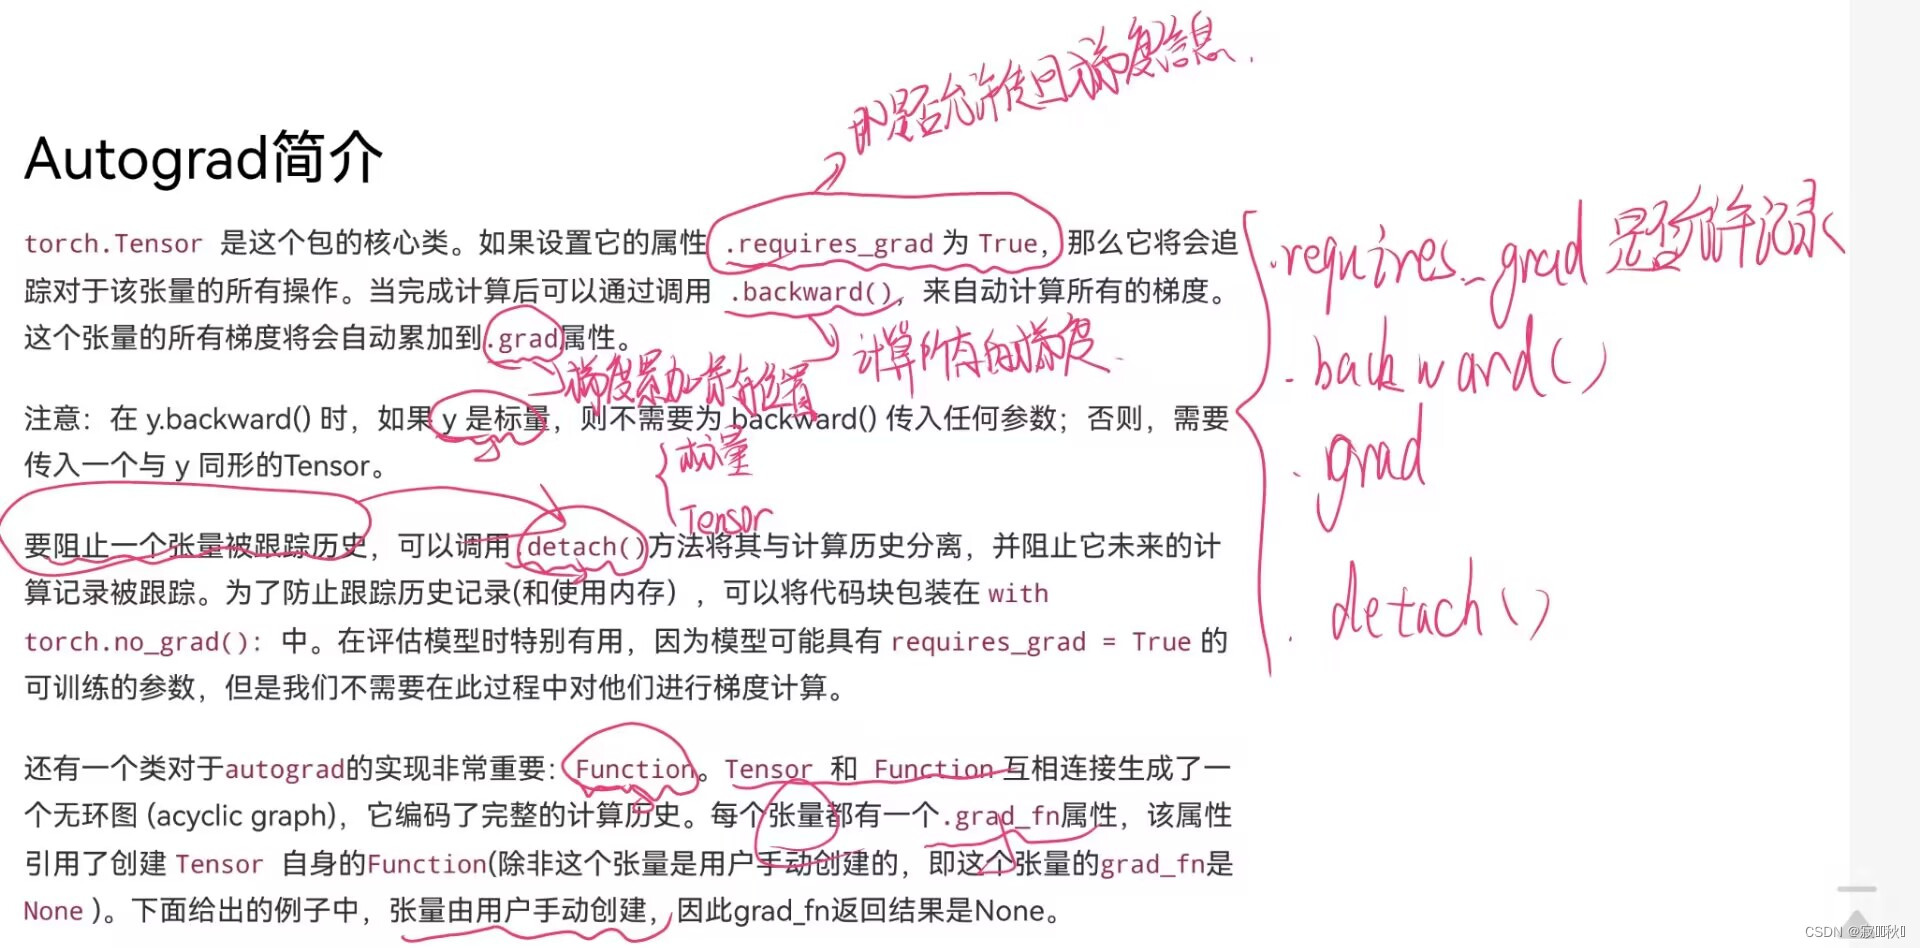 即是否允许传回梯度信息.
Autograd简介
torch.Tensor 是这个包的核心类。如果设置它的属性 .requires_grad 为 True，那么它将会追
踪对于该张量的所有操作。当完成计算后可以通过调用 .backward()，来自动计算所有的梯度。
这个张量的所有梯度将会自动累加到.grad属性。
计算所有的梯度.
梯度累加 位置
注意：在 y.backward() 时，如果 y 是标量，则不需要为 backward() 传入任何参数；否则，需要
传入一个与 y 同形的Tensor。
标量
Tensor
要阻止一个张量被跟踪历史，可以调用.detach()方法将其与计算历史分离，并阻止它未来的计
算记录被跟踪。为了防止跟踪历史记录(和使用内存），可以将代码块包装在 with
torch.no_grad(): 中。在评估模型时特别有用，因为模型可能具有 requires_grad = True 的
可训练的参数，但是我们不需要在此过程中对他们进行梯度计算。
还有一个类对于autograd的实现非常重要：Function。Tensor 和 Function 互相连接生成了一
个无环图 (acyclic graph)，它编码了完整的计算历史。每个张量都有一个.grad_fn属性，该属性
引用了创建 Tensor 自身的Function(除非这个张量是用户手动创建的，即这个张量的grad_fn是
None )。下面给出的例子中，张量由用户手动创建，因此grad_fn返回结果是None。
.requires_grad 是否允许记录
.backward()
.grad
.detach()
CSDN @寂 秋